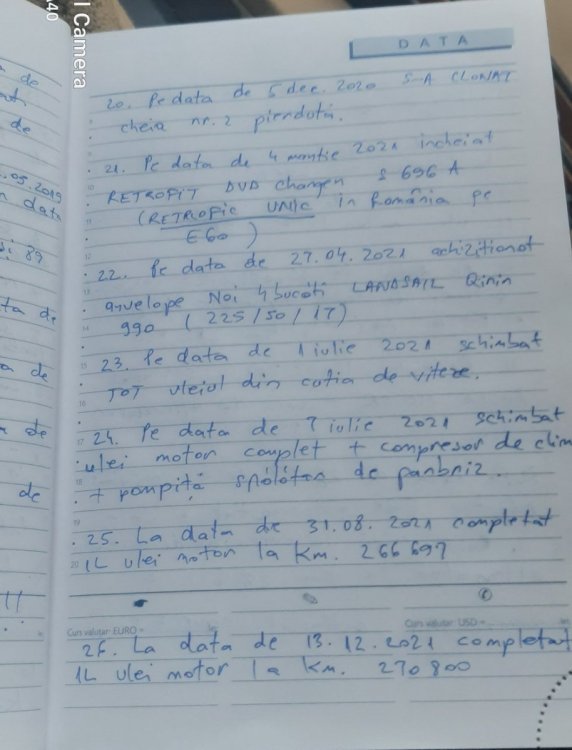 40
l Camera
DATA
de
de
.05.2019
data
și 89
de
de
de
20. Pe data de 5 dec. 2020 S-A CLONAT
cheia nr. 2 pierdută.
21. Pe data de 4 martie 2021 incheiat
RETROFIT DVD changer S 696 A
(RETROFIC UNIC in România pe
E60)
22. Pe data de 27.04.2021 achizitionat
anvelope Noi 4 bucăti LANDSAIL Qirin
990 (225/50/17)
23. Pe data de 1 iulie 2021 schimbat
TOT uleiul din cutia de viteze.
24. Pe data de 7 iulie 2021 schimbat
ulei motor complet + compresor de clim
+ pompiță spălător de parbriz.
25. La data de 31.08.2021 completat
1L ulei motor la km. 266697
Curs valutar: EURO =
lei
Curs valutar: USD =
26. La data de 13.12.2021 completat
1L ulei motor la km. 270800